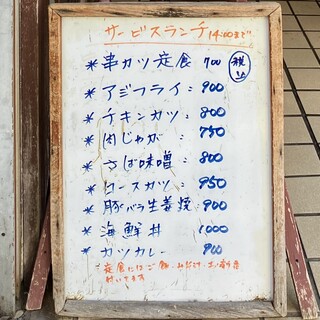 サービスランチ 14:00まで
* 串カツ定食 700 税込
* アジフライ: 900
* チキンカツ : 800
* 肉じゃが : 750
* さば味噌 : 800
* ロースカツ : 950
* 豚バラ生姜焼 : 900
* 海鮮丼 1000
* カツカレー 900
定食にはご飯・みそ汁・
付いてます